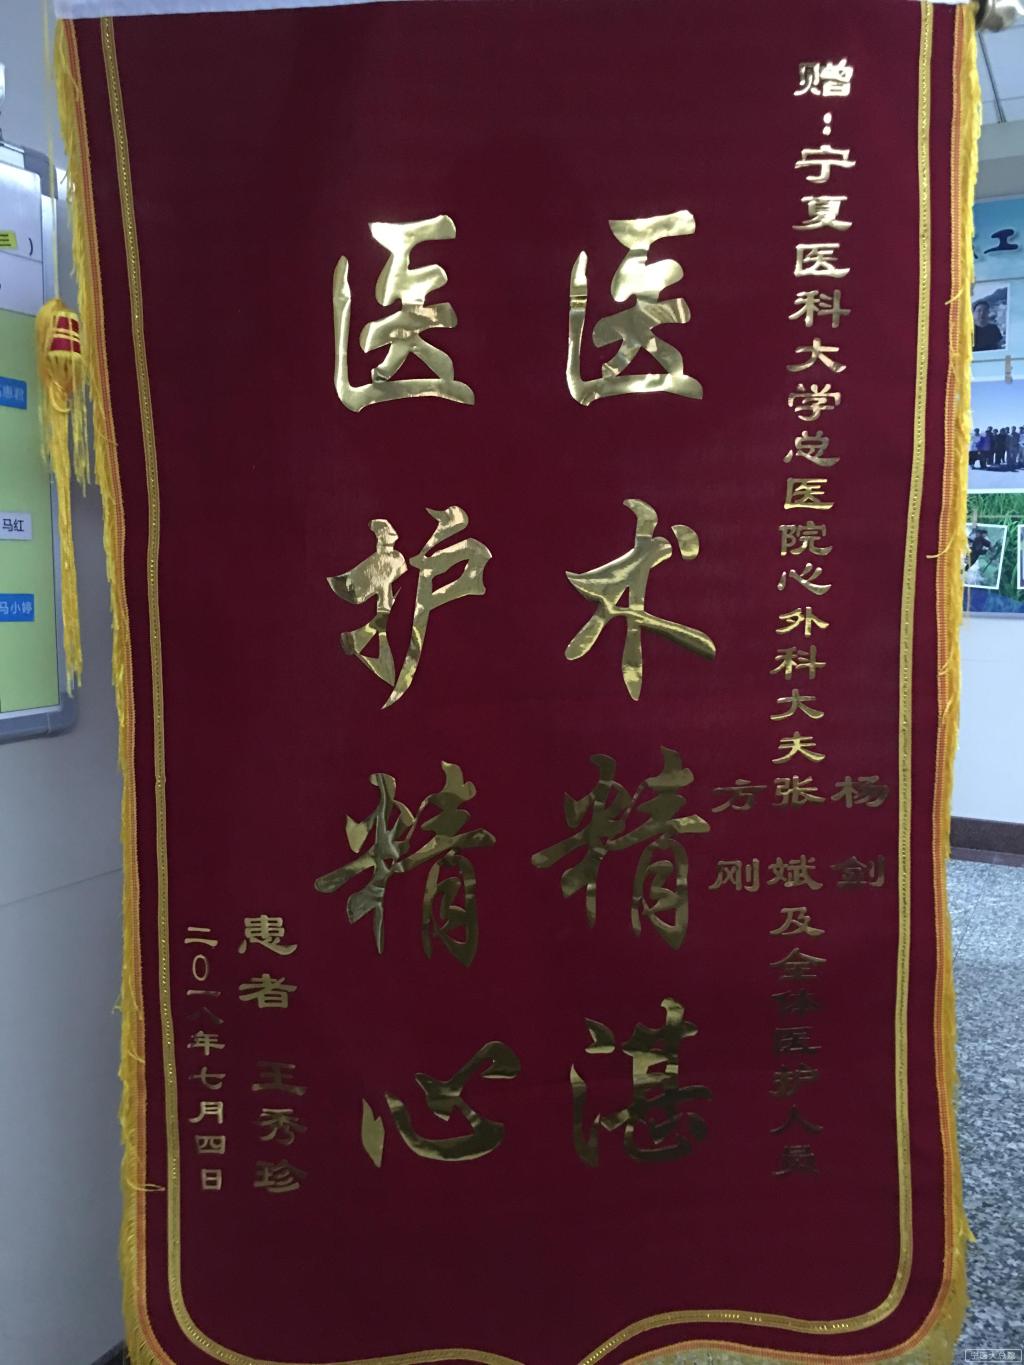 赠：宁夏医科大学总医院心外科大夫杨剑
张斌
方刚
及全体医护人员
医术精湛
医护精心
患者 王秀珍
二0一八年七月四日
三）
马红
马小婷
惠君
工